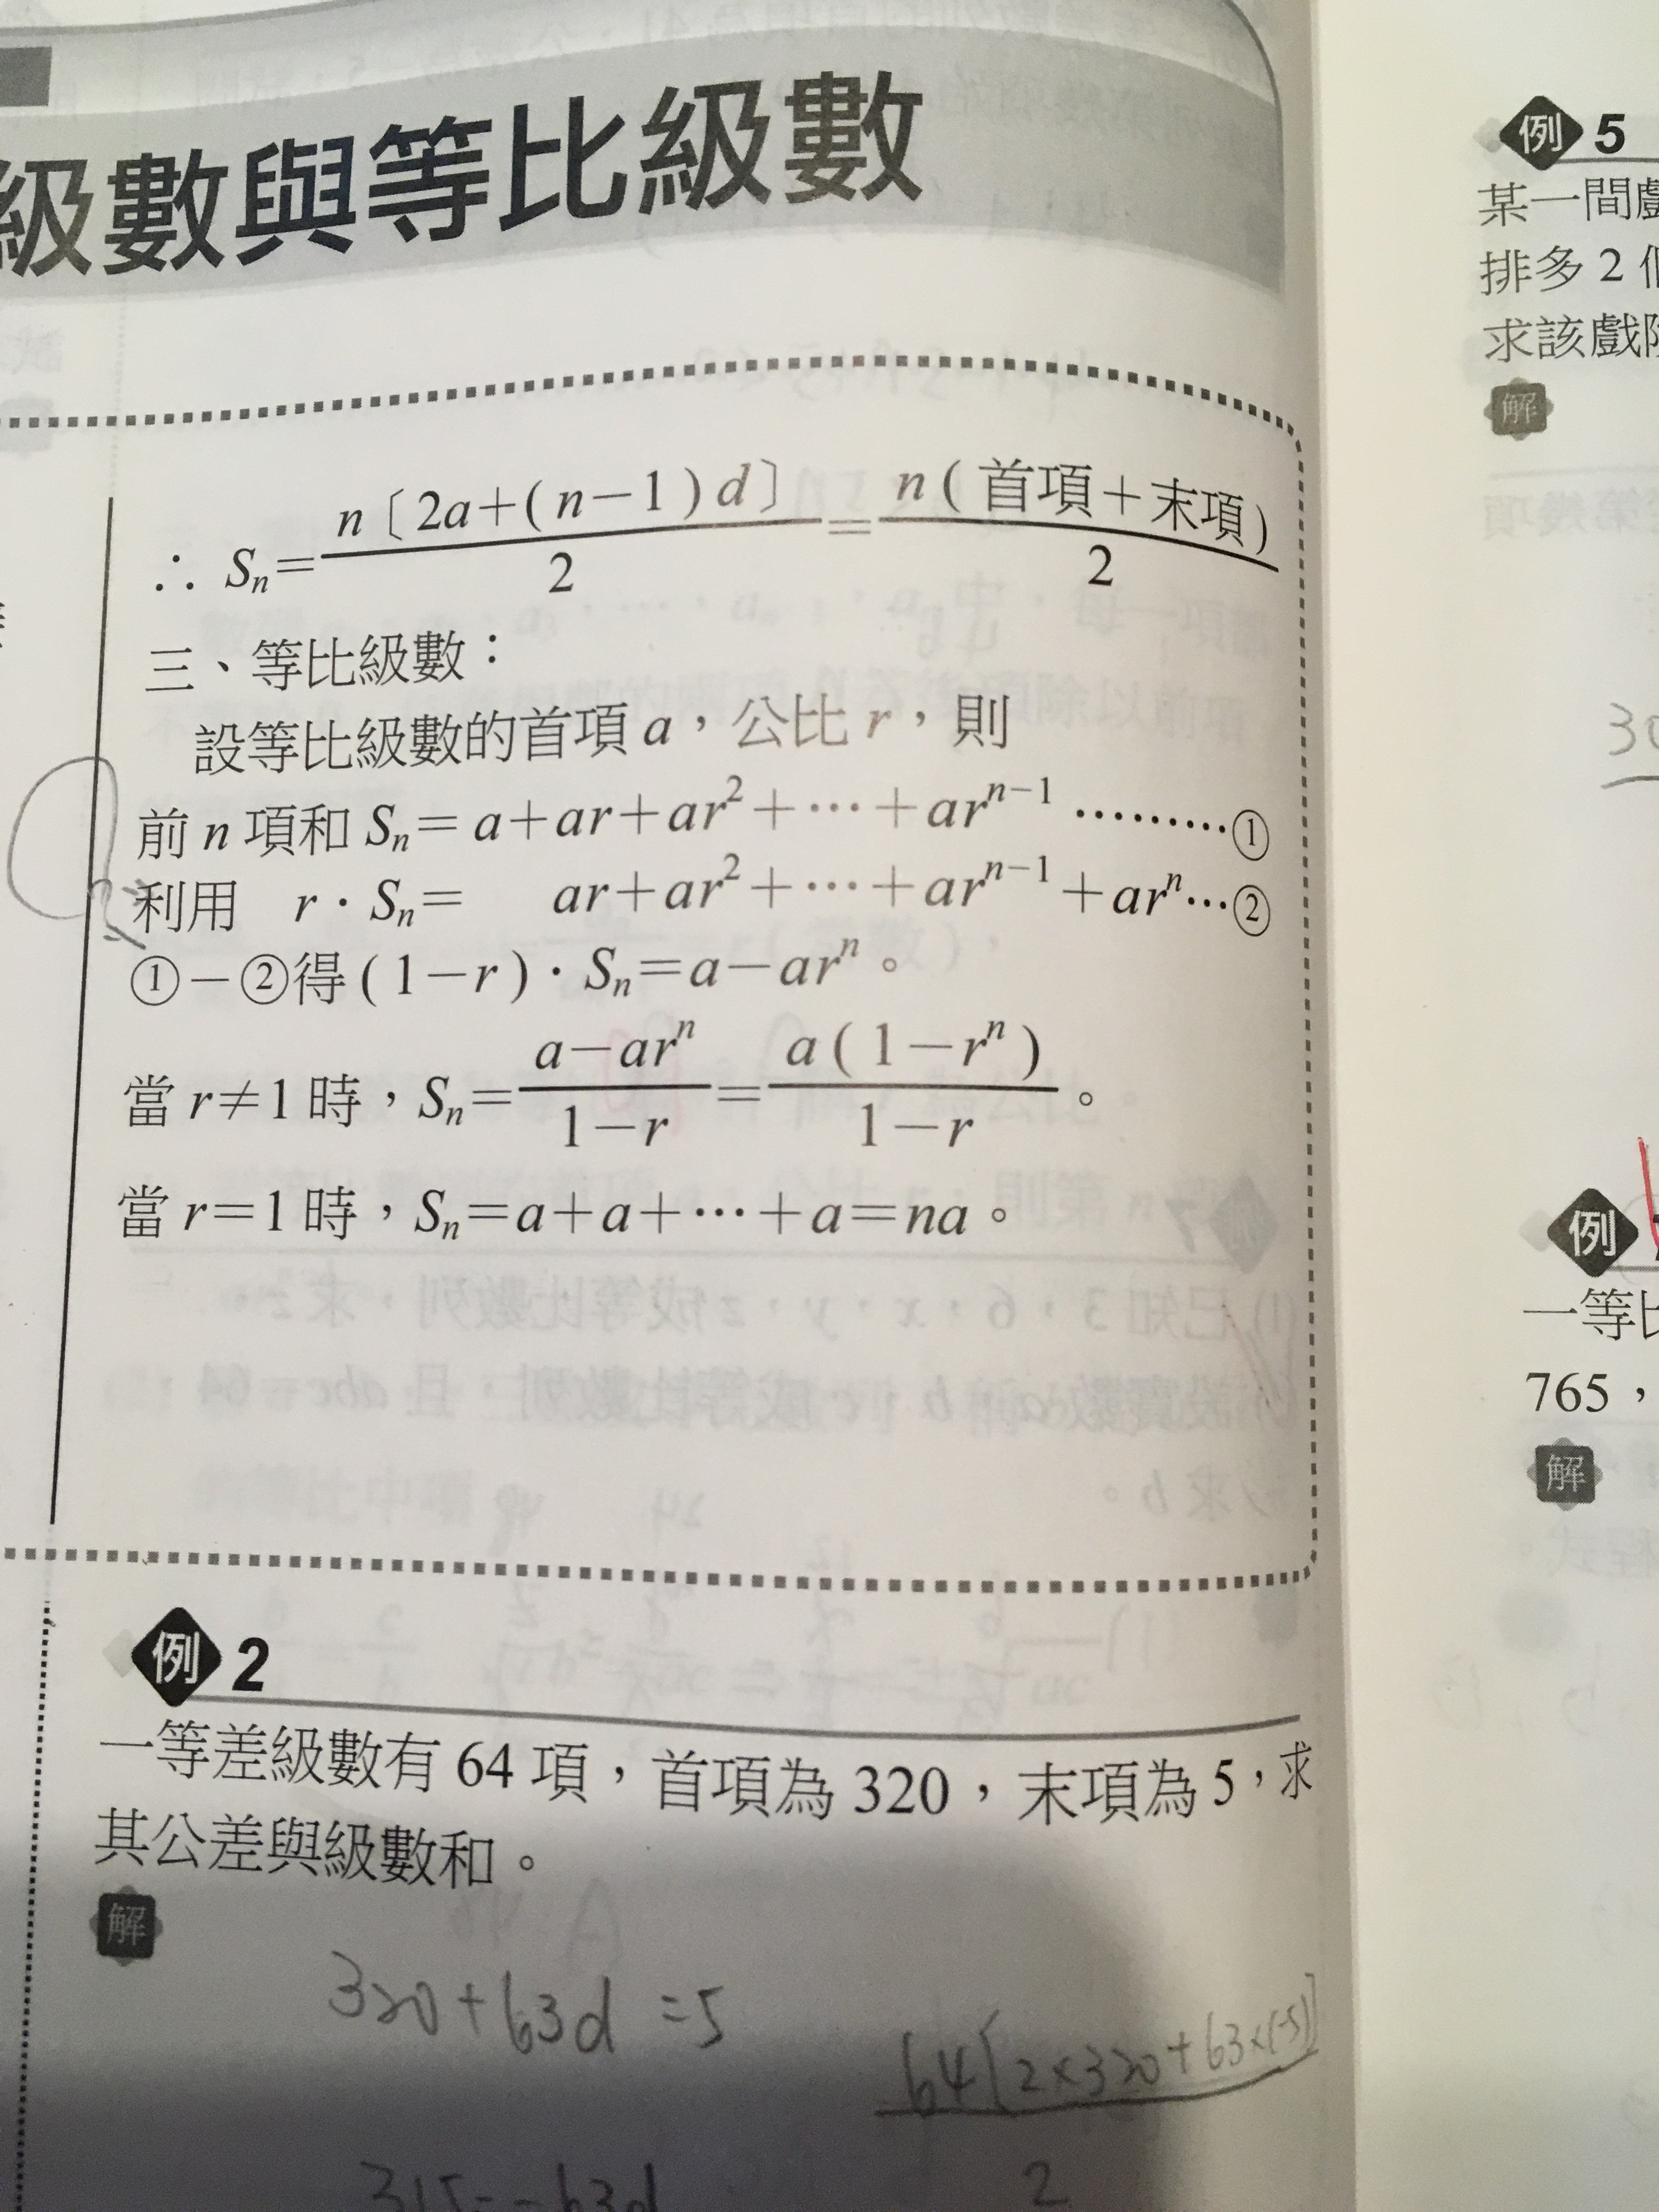 級數與等比級數
∴ Sn=n〔2a+(n-1)d〕/2=n(首項+末項)/2
三、等比級數：
設等比級數的首項a，公比r，則
前n項和Sn=a+ar+ar²+…+arⁿ⁻¹ ………①
利用 r·Sn= ar+ar²+…+arⁿ⁻¹+arⁿ…②
①-②得(1-r)·Sn=a-arⁿ。
當r≠1時，Sn=a-arⁿ/1-r=a(1-rⁿ)/1-r。
當r=1時，Sn=a+a+…+a=na。
例2
一等差級數有64項，首項為320，末項為5，求
其公差與級數和。
解
320+63d=5
64[2×320+63×(-5)]
2
315=-63d
例5
某一間戲
排多2個
求該戲院
解
30
例
一等比
765，
解